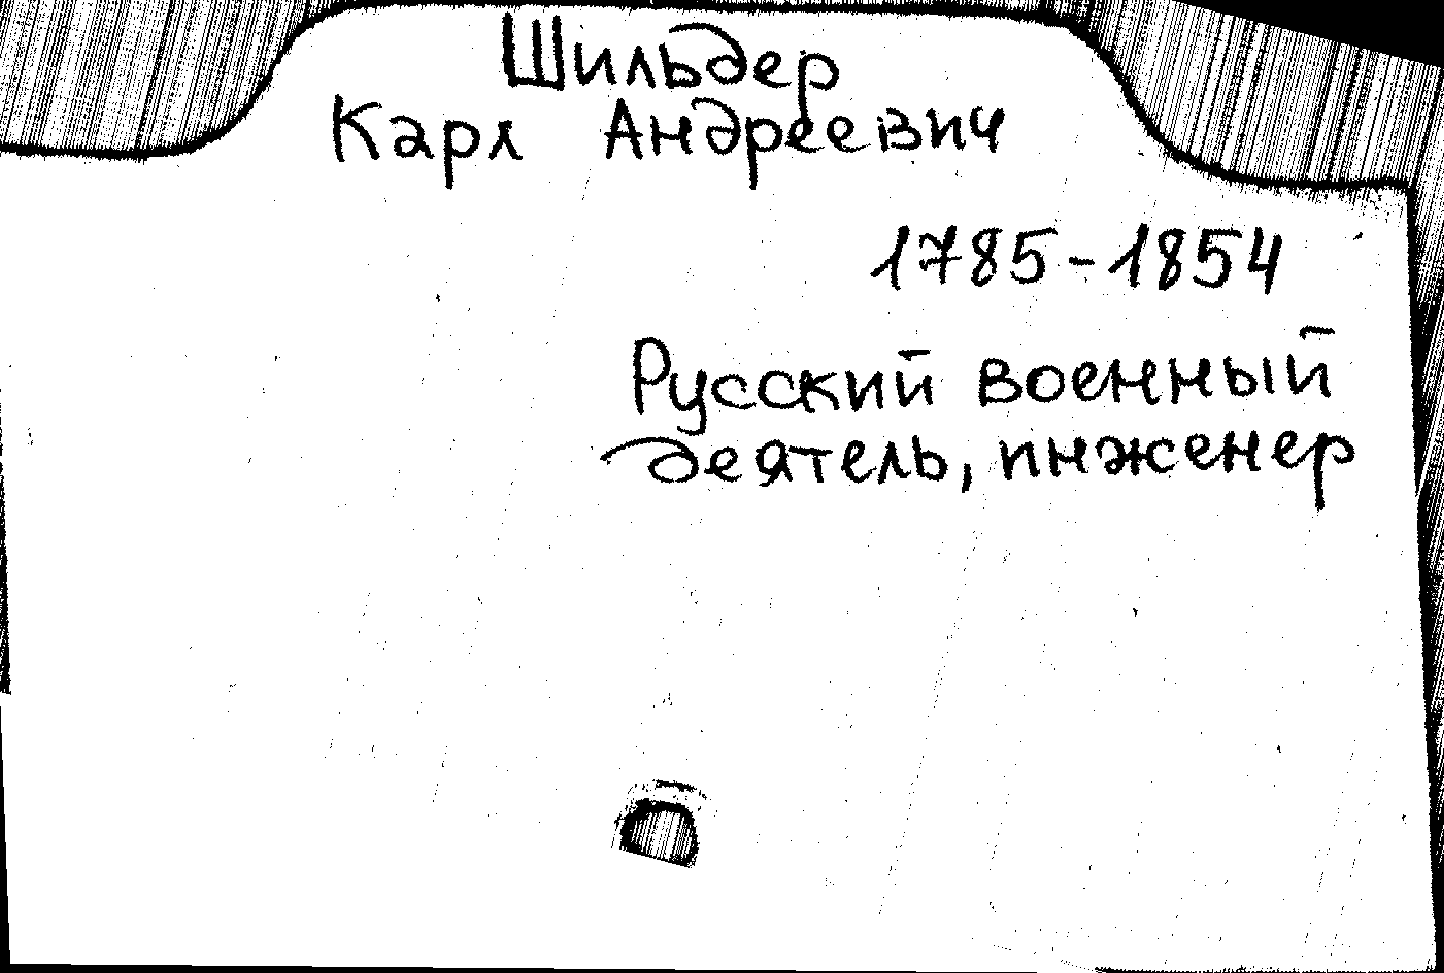 Шильдер
Карл Андреевич
1785-1854
Русский военный
деятель, инженер